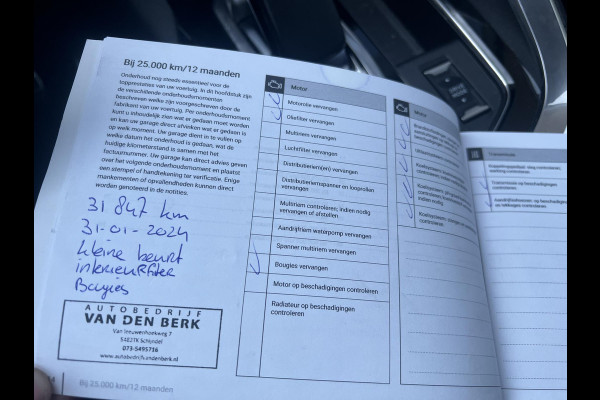 Bij 25.000 km/12 maanden
Onderhoud nog steeds essentieel voor de
topprestaties van uw voertuig. In dit hoofdstuk zijn
de verschillende onderhoudsmomenten
beschreven welke zijn voorgeschreven door de
fabrikant van uw voertuig. Per onderhoudsmoment
kunt u inhoudelijk zien wat er gedaan moet worden
en kan uw garage direct afvinken wat er gedaan is
op welk moment. Uw garage dient in te vullen op
welke datum het onderhoud is gedaan, wat de
huidige kilometerstand is samen met het
factuurnummer. Uw garage kan direct advies geven
over het volgende onderhoudsmoment en plaatst
een stempel of handtekening ter verificatie. Enige
mankementen of opvallendheden kunnen direct
worden genoteerd in de notities.
31 847 km
31-01-2024
kleine beurt
interieurfilter
Bougies
AUTOBEDRIJF
VAN DEN BERK
Van Leeuwenhoekweg 7
5482TK Schijndel
073-5495716
www.autobedrijfvandenberk.nl
Bij 25.000 km/12 maanden
Motor
Motorolie vervangen
Oliefilter vervangen
Multiriem vervangen
Luchtfilter vervangen
Distributieriem(en) vervangen
Distributieriemspanner en looprollen
vervangen
Multiriem controleren; indien nodig
vervangen of afstellen
Aandrijfriem waterpomp vervangen
Spanner multiriem vervangen
Bougies vervangen
Motor op beschadigingen controleren
Radiateur op beschadigingen
controleren
Motor